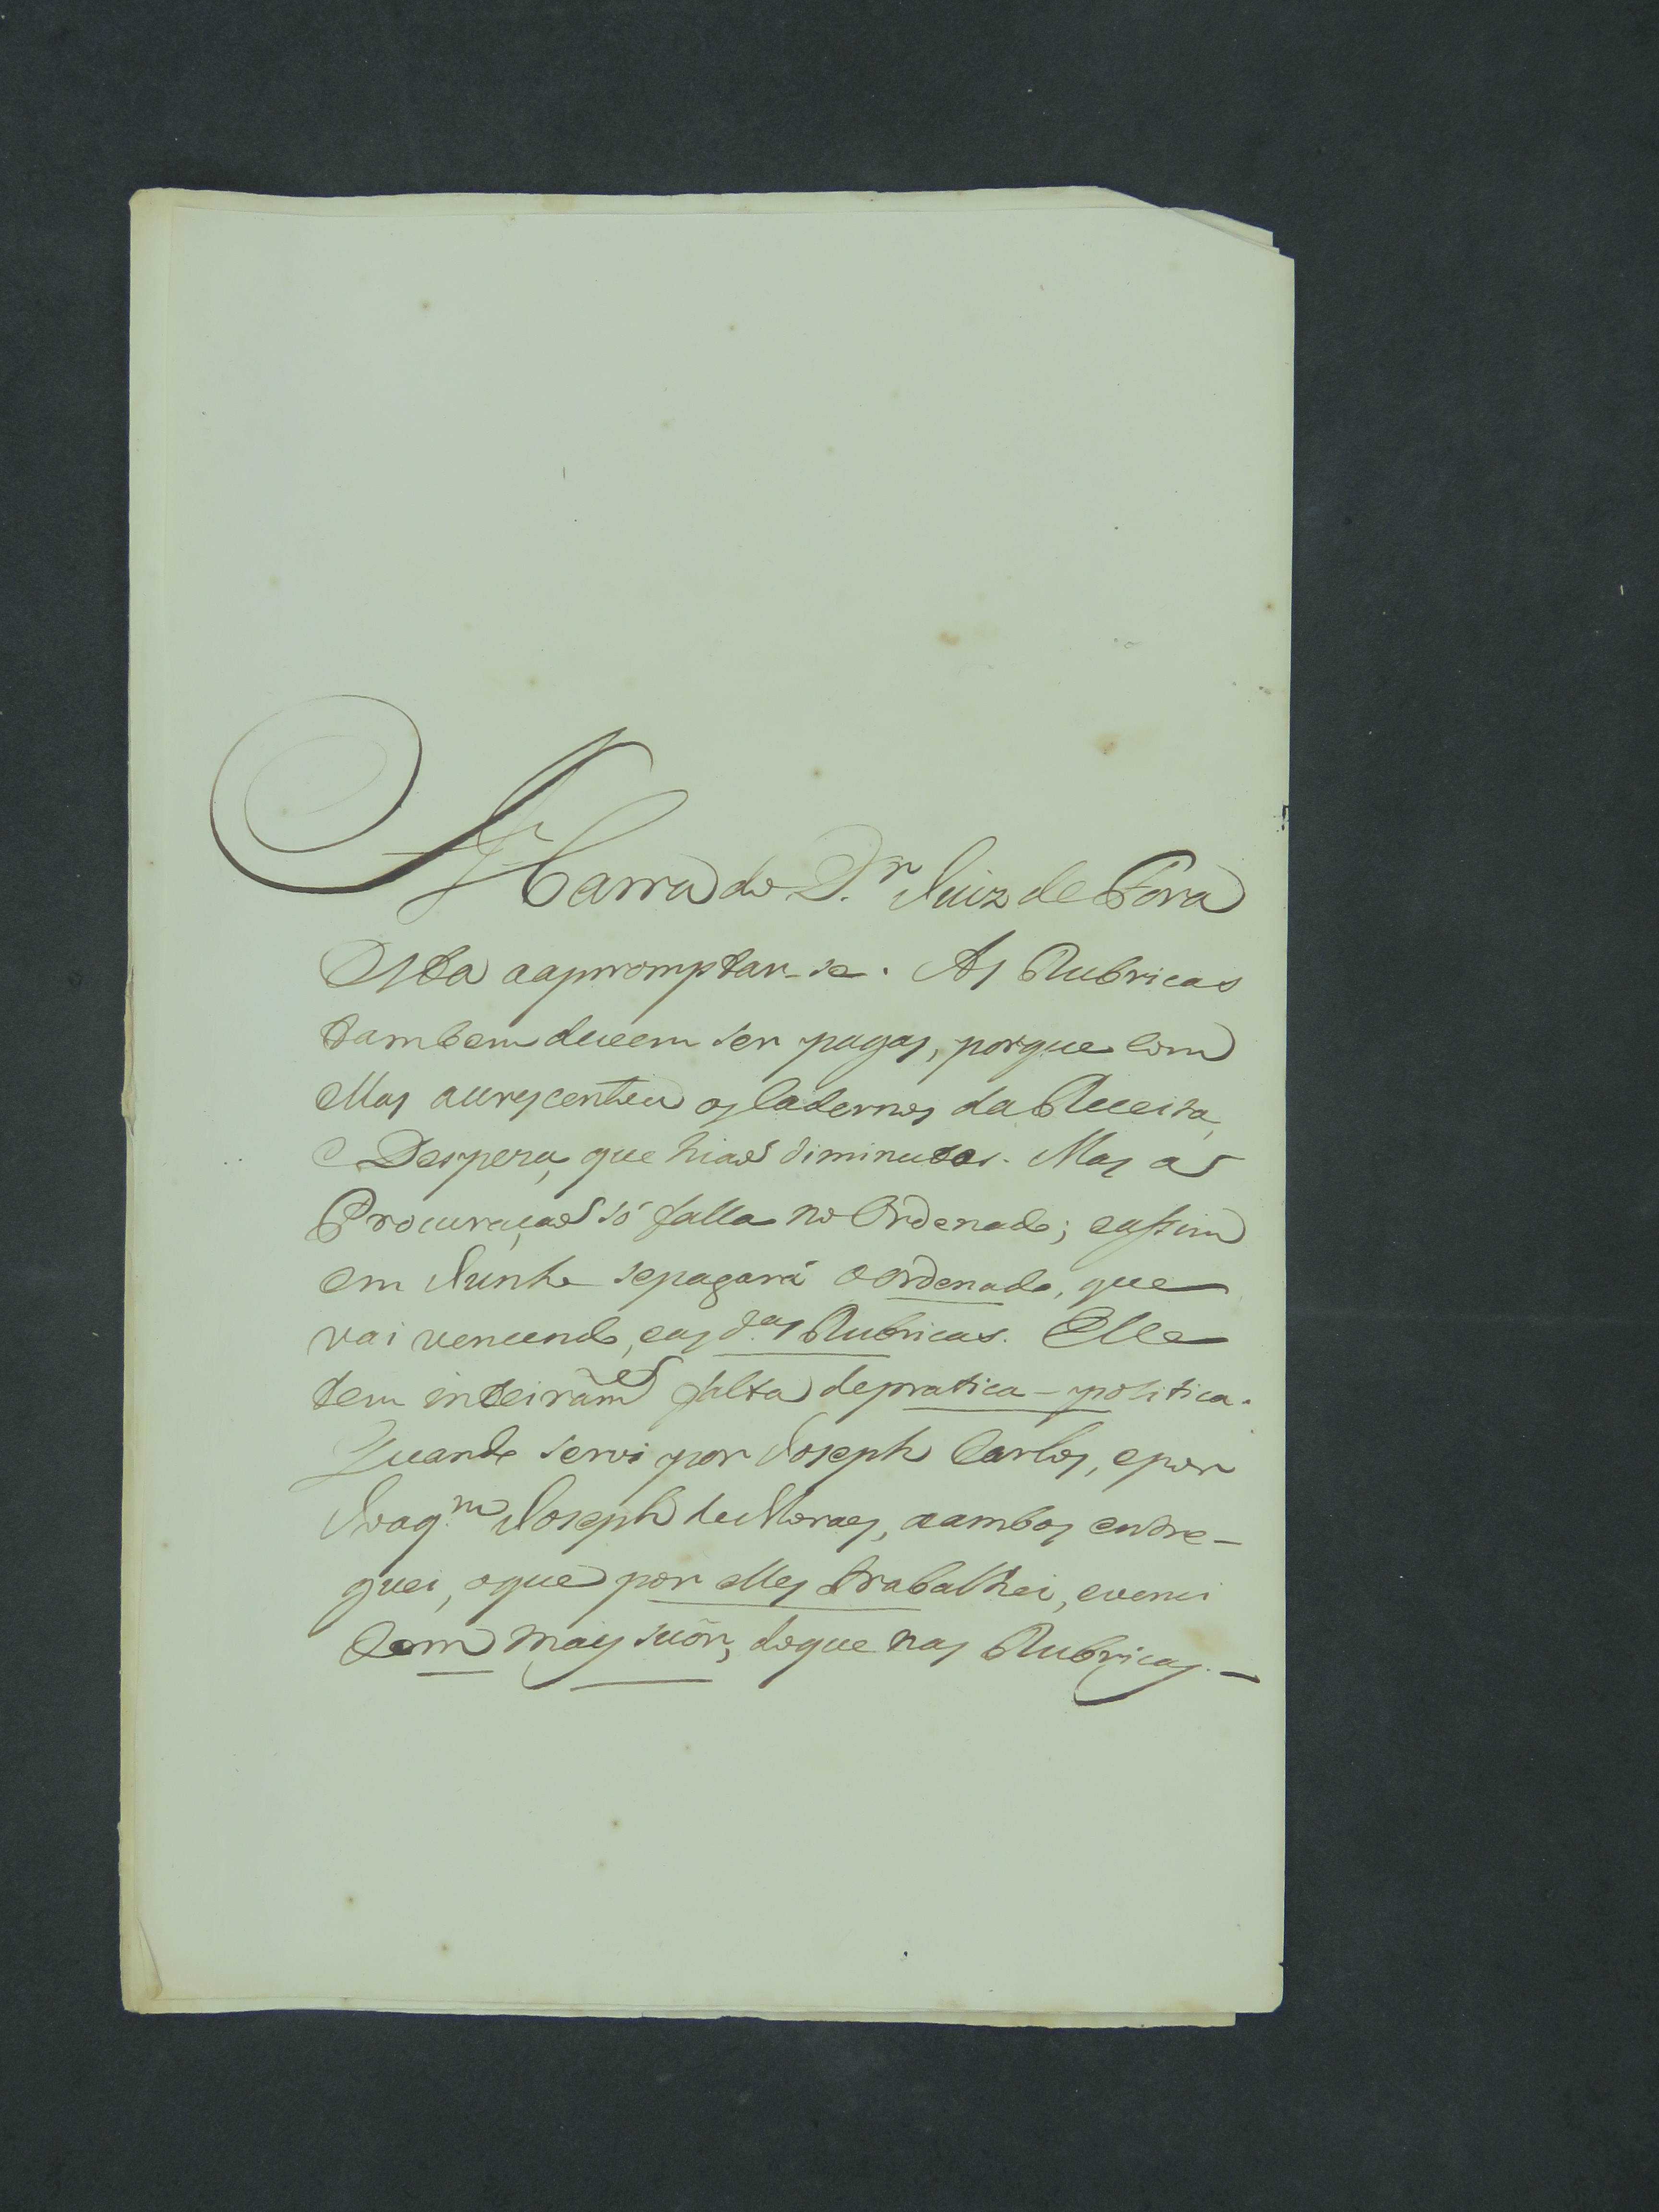 A Carra do D.r Juiz de Fora
Esta aapromptar-se. As Rubricas
tambem devem ser pagas, porque com
ellas acrescentou os Cadernos da Receita,
e Despeza, que hiaõ diminutos. Mas as
Procuraçaõ só falla no Ordenado; eassim
em Junho sepagará o ordenado, que
vai vencendo, eas d.as Rubricas. Elle
tem inteiram.e falta depratica-politica.
Quando servi por Joseph Carlos, epor
Joaq.m Joseph de Moraes, aambos entre-
guei, oque por elles trabalhei, evenci
Com mais suor, doque nas Rubricas.—